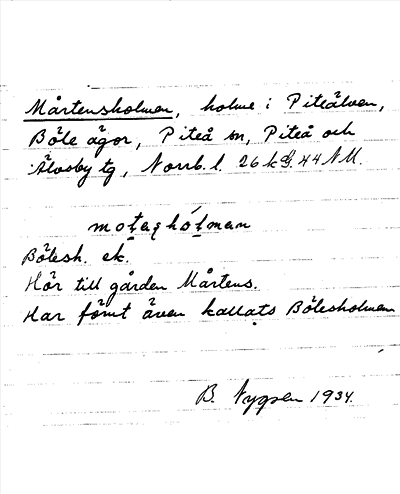 Mårtensholmen, holme i Piteälven,
Böle ägor, Piteå sn, Piteå och
Älvsby tg, Norrb. l. 26 k 44 NM.
Bölesh. ek.
Hör till gården Mårtens.
Har förut även kallats Bölesholmen
B. Nygren 1934.